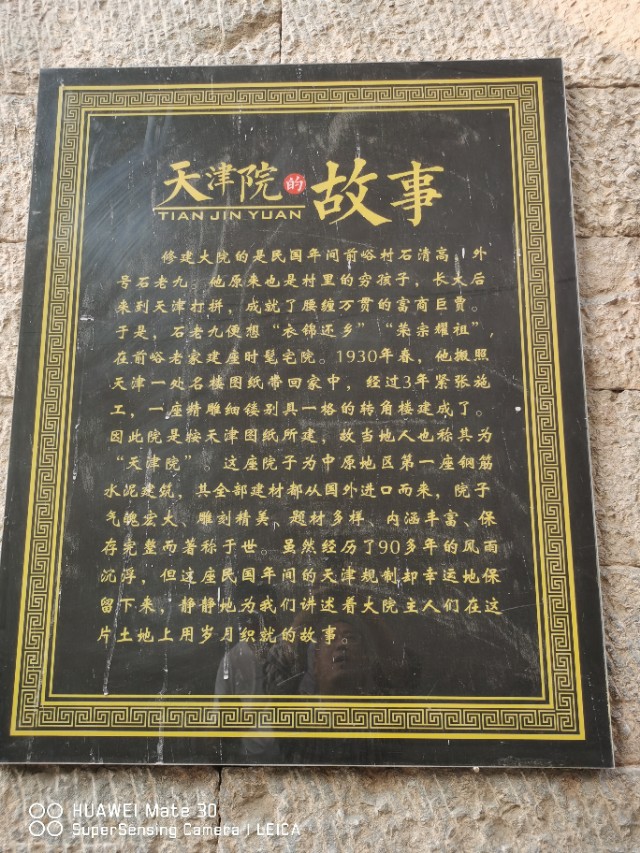 天津院的故事
TIAN JIN YUAN
修建大院的是民国年间前峪村石清高，外
号石老九。他原来也是村里的穷孩子，长大后
来到天津打拼，成就了腰缠万贯的富商巨贾。
于是，石老九便想“衣锦还乡”“荣宗耀祖”，
在前峪老家建座时髦宅院。1930年春，他搬照
天津一处名楼图纸带回家中，经过3年紧张施
工，一座精雕细镂别具一格的转角楼建成了。
因此院是按天津图纸所建，故当地人也称其为
“天津院”。这座院子为中原地区第一座钢筋
水泥建筑，其全部建材都从国外进口而来，院子
气魄宏大、雕刻精美、题材多样、内涵丰富、保
存完整而著称于世。虽然经历了90多年的风雨
沉浮，但这座民国年间的天津规制却幸运地保
留下来，静静地为我们讲述着大院主人们在这
片土地上用岁月织就的故事。
HUAWEI Mate 30
SuperSensing Camera | LEICA